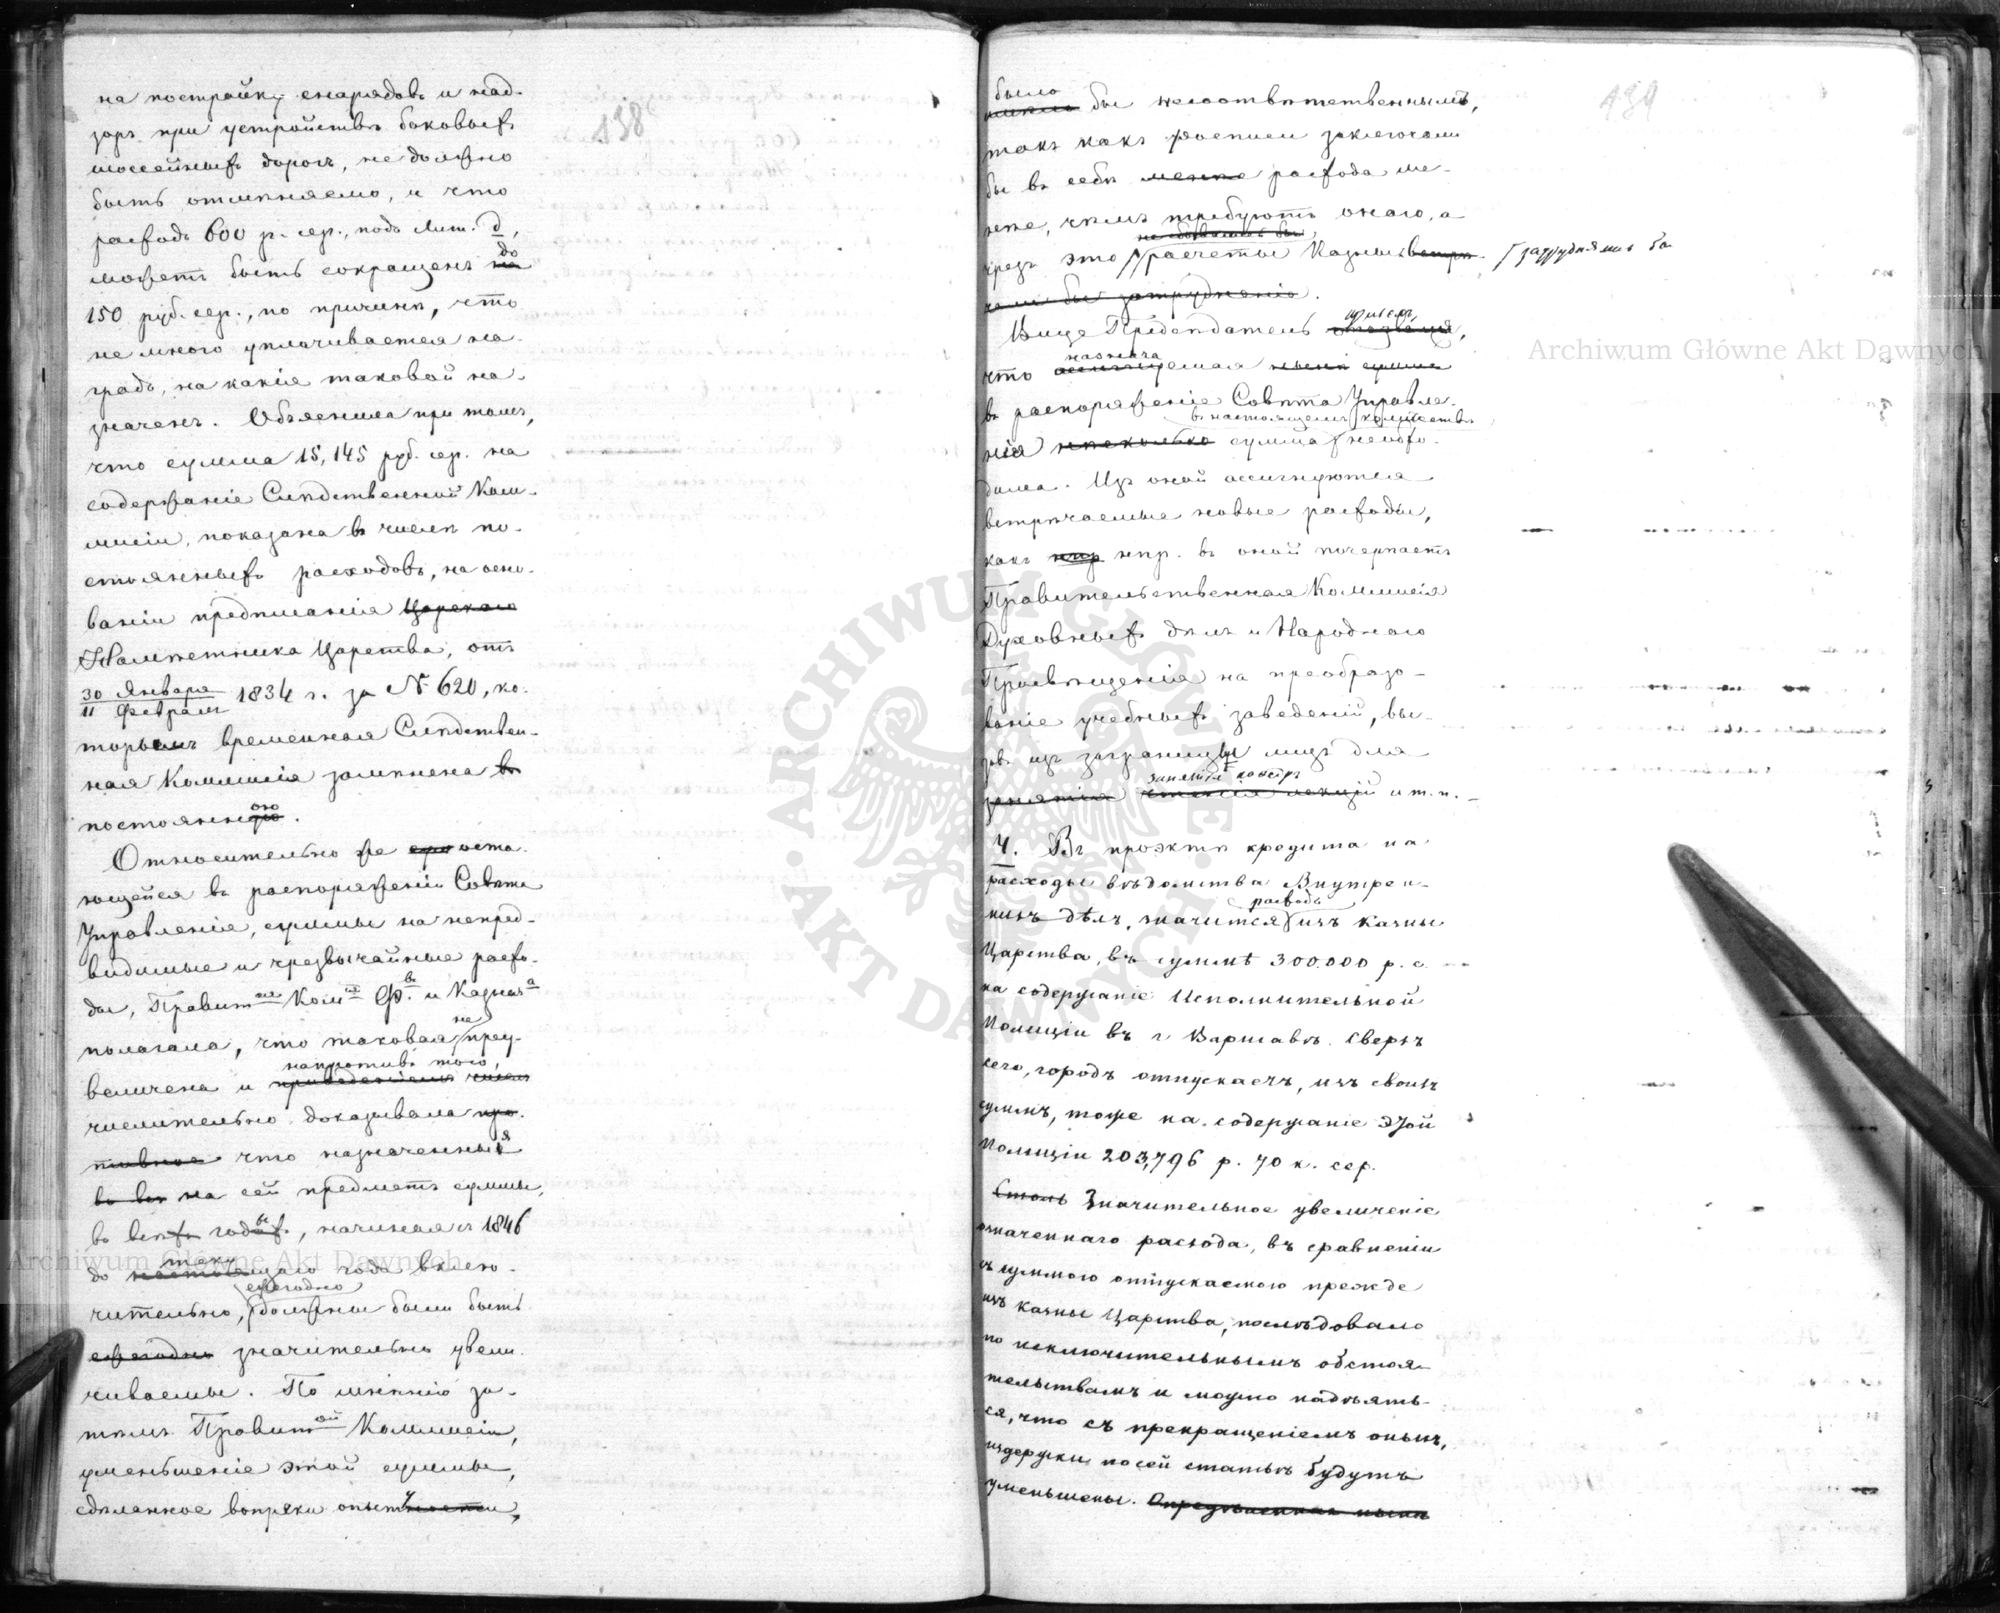 138
на постройку снарядовъ и над-
зоръ при устройствѣ боковыхъ
шоссейныхъ дорогъ, не должно
быть отмѣняемо, и что
расходъ 600 р. сер., подъ Лит. d,
можетъ быть сокращенъ на до
150 руб. сер., по причинѣ, что
не много уплачивается на-
градъ, на какіе таковой на-
значенъ. Объяснила при томъ,
что сумма 15,145 руб. сер. на
содержаніе Слѣдственной Ком-
мисіи, показана въ числѣ по-
стоянныхъ расходовъ, на осно-
ваніи предписанія Царскаго
Намѣстника Царства, отъ
30 Января / 11 Февраля 1834 г. за № 620, ко-
торымъ временная Слѣдствен-
ная Коммисія замѣнена въ
постоянною.
Относительно же оста-
ющейся въ распоряженіи Совѣта
Управленія, суммы на непред-
видимые и чрезвычайные расхо-
ды, Правит. Ком. Ф. и Казнач.
полагала, что таковая не преу-
величена и напротивъ того,
числительно доказывала про-
тивное что назначенныя
во все на сей предметъ суммы,
въ всѣхъ годахъ, начиная съ 1846
до настоящаго года вклю-
чительно, ежегодно должны были быть
ежегодно значительно увели-
чиваемы. По мнѣнію за-
тѣмъ Правит. Коммисіи,
уменьшеніе этой суммы,
сдѣланное вопреки опыту,
139
было бы несоотвѣтственнымъ,
такъ какъ росписи заключали
бы въ себѣ менѣе расхода ме-
нѣе, чѣмъ требуютъ онаго, а
чрезъ это расчеты Казны встрѣ- затруднялись бы
чали бы затрудненія.
Вице Предсѣдатель,
что назначаемая нынѣ сумма
въ распоряженіе Совѣта Управле-
нія нѣсколько сумма въ настоящемъ количествѣ необхо-
дима. Изъ оной ассигнуются
встрѣчаемые новые расходы,
какъ нпр. въ оной почерпаетъ
Правительственная Коммисія
Духовныхъ дѣлъ и Народнаго
Просвѣщенія на преобразо-
ваніе учебныхъ заведеній, вы-
зовъ изъ заграницы лицъ для
занятія чтенія лекцій и т. п.
4. Въ проэктѣ кредита на
расходы вѣдомства Внутрен-
нихъ дѣлъ, значится расходъ изъ казны
Царства, въ суммѣ 300.000 р. с.
на содержаніе Исполнительной
Полиціи въ г. Варшавѣ. Сверхъ
сего, городъ отпускаетъ, изъ своихъ
суммъ, тоже на содержаніе этой
Полиціи 203,796 р. 70 к. сер.
Столь Значительное увеличеніе
означеннаго расхода, въ сравненіи
съ суммою отпускаемою прежде
изъ казны Царства, послѣдовало
по исключительнымъ обстоя-
тельствамъ и можно надѣять-
ся, что съ прекращеніемъ оныхъ,
издержки по сей статьѣ будутъ
уменьшены. Опредѣленная нынѣ
Archiwum Główne Akt Dawnych
Archiwum Główne Akt Dawnych
ARCHIWUM GŁÓWNE · AKT DAWNYCH ·